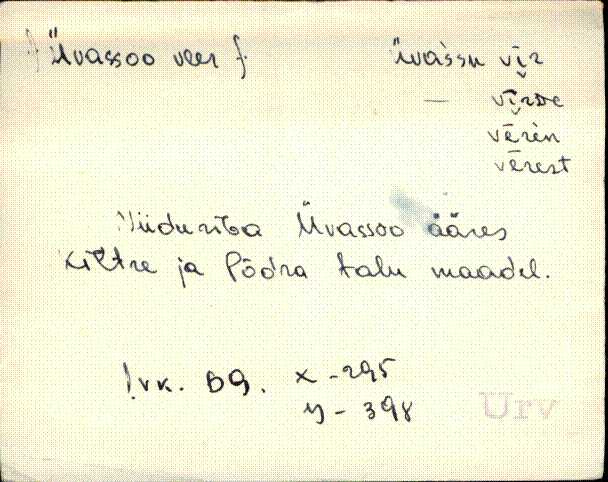 Üvassoo veer üvassu vīr
— vīrde
vērën
vērest
Niiduriba Üvassoo ääres
Kiltre ja Põdra talu maadel.
!vk. 69. x - 295
y - 398
Urv